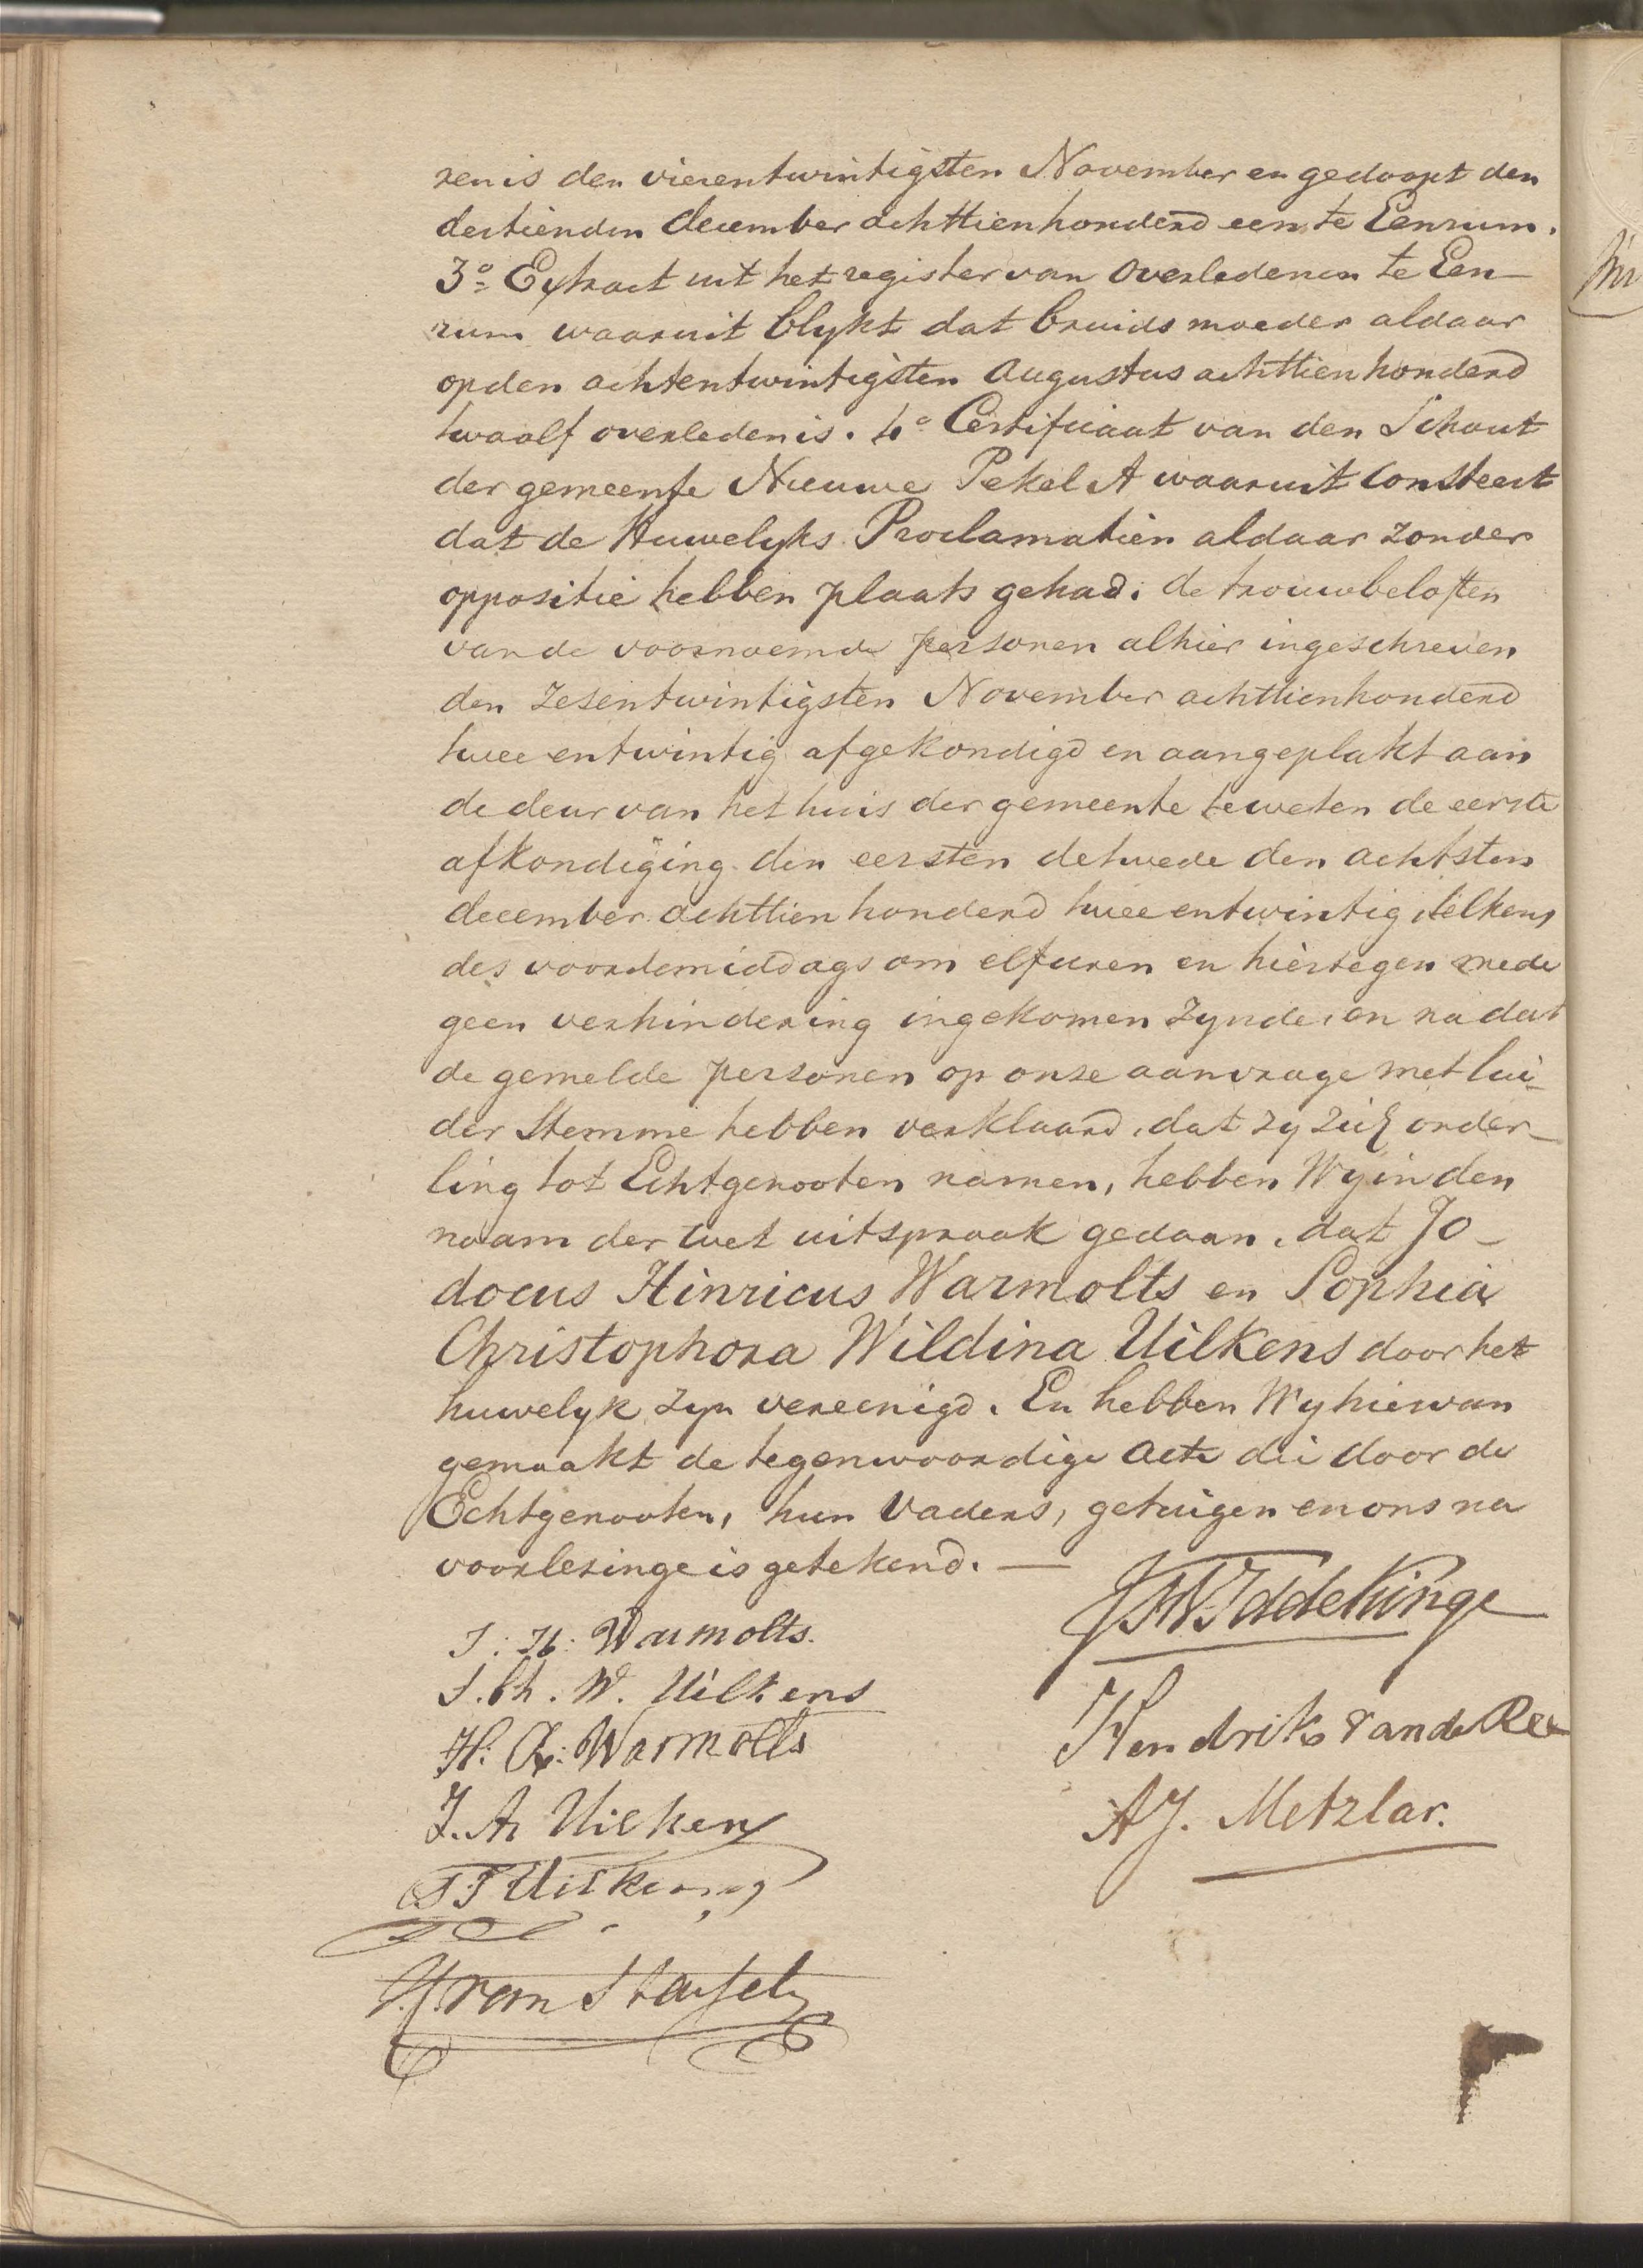 ren is den vierentwintigsten November en gedoopt den
dertienden december achttienhonderd een te Eenrum.
3o Extract uit het register van Overledenen te Een-
rum waaruit blykt dat bruids moeder aldaar
op den achtentwintigsten Augustus achttienhonderd
twaalf overleden is. 4o Certificaat van den Schout
der gemeente Nieuwe Pekel A waaruit Consteert
dat de Huwelyks Proclamatien aldaar zonder
oppositie hebben plaats gehad. de trouwbeloften
van de voornoemde personen alhier ingeschreven
den Zesentwintigsten November achttienhonderd
twee entwintig afgekondigd en aangeplakt aan
de deur van het huis der gemeente teweten de eerste
afkondiging den eersten de twede den achtsten
december achttien honderd twee entwintig, telkens
des voordemiddags om elf uren en hiertegen mede
geen verhindering ingekomen Zynde, en nadat
de gemelde personen op onze aanvrage met lui-
der Stemme hebben verklaard, dat zy zich onder-
ling tot Echtgenooten namen, hebben Wy in den
naam der wet uitspraak gedaan, dat Jo-
docus Hinricus Warmolts en Sophia
Christophora Wildina Uilkens door het
huwelyk zyn vereenigd. En hebben Wy hiervan
gemaakt de tegenwoordige acte die door de
Echtgenooten, hun Vaders, getuigen en ons na
voorlezinge is getekend. —
J: H: Warmolts.
S. Ch. W. Uilkens
H: A: Warmolts
J. A. Uilkens
T F Uilkens
H. van Stapel
Iddekinge
Hendriks van de Ree
A J. Metzlar.